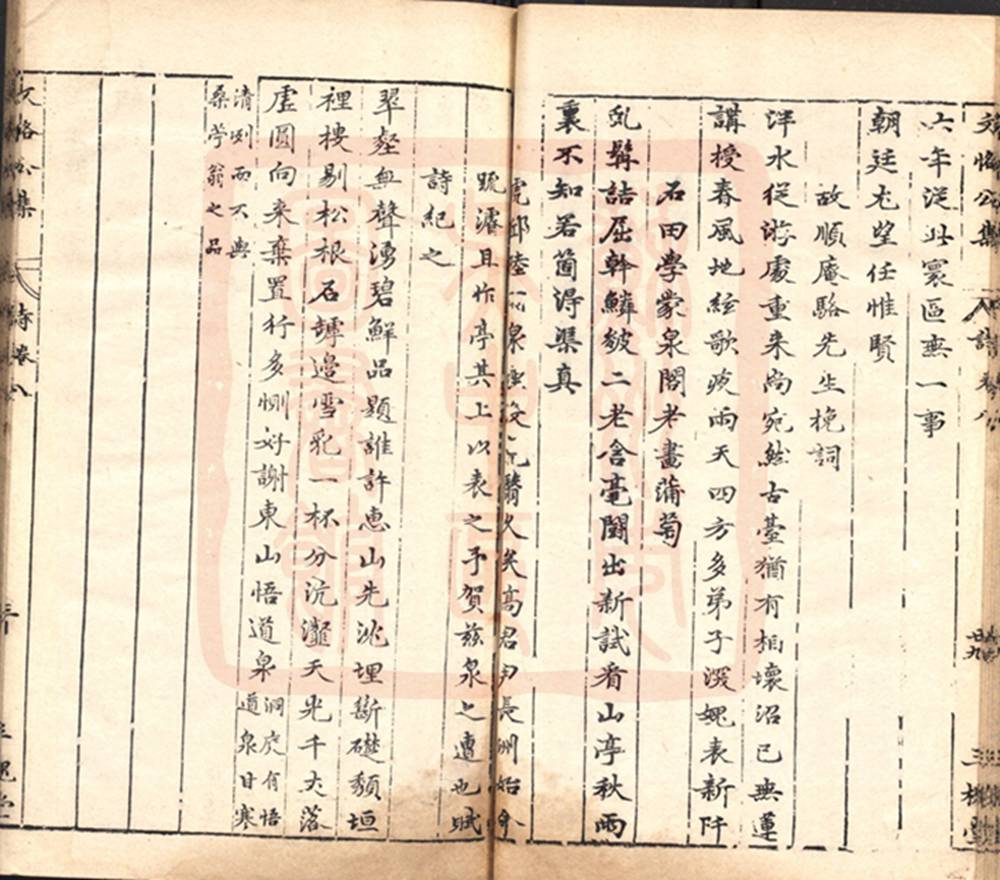 六年從此寰區無一事
朝廷尤望任惟賢
故順庵駱先生挽詞
泮水從游處重来尚宛然古臺猶有柏壞沼已無蓮
講授春風地絃歌夜雨天四方多弟子深媿表新阡
石田學蒙泉閣老畫蒲萄
虬髯詰屈幹鱗皴二老含毫闘出新試看山亭秋雨
裏不知若箇得渠真
虎邱陸泉久矣高君尹長洲始令
疏濬且作亭其上以表之予賀兹泉之遭也賦
詩紀之
翠壑無聲湧碧鮮品題誰許惠山先沈埋斷礎頽垣
裡搜剔松根石罅邉雪乳一杯分沆瀣天光千丈落
虗圓向来棄置行多惻好謝東山悟道泉洞庭有悟
道泉甘寒
清冽而不與
桑苧翁之品
文恪公集
詩卷八